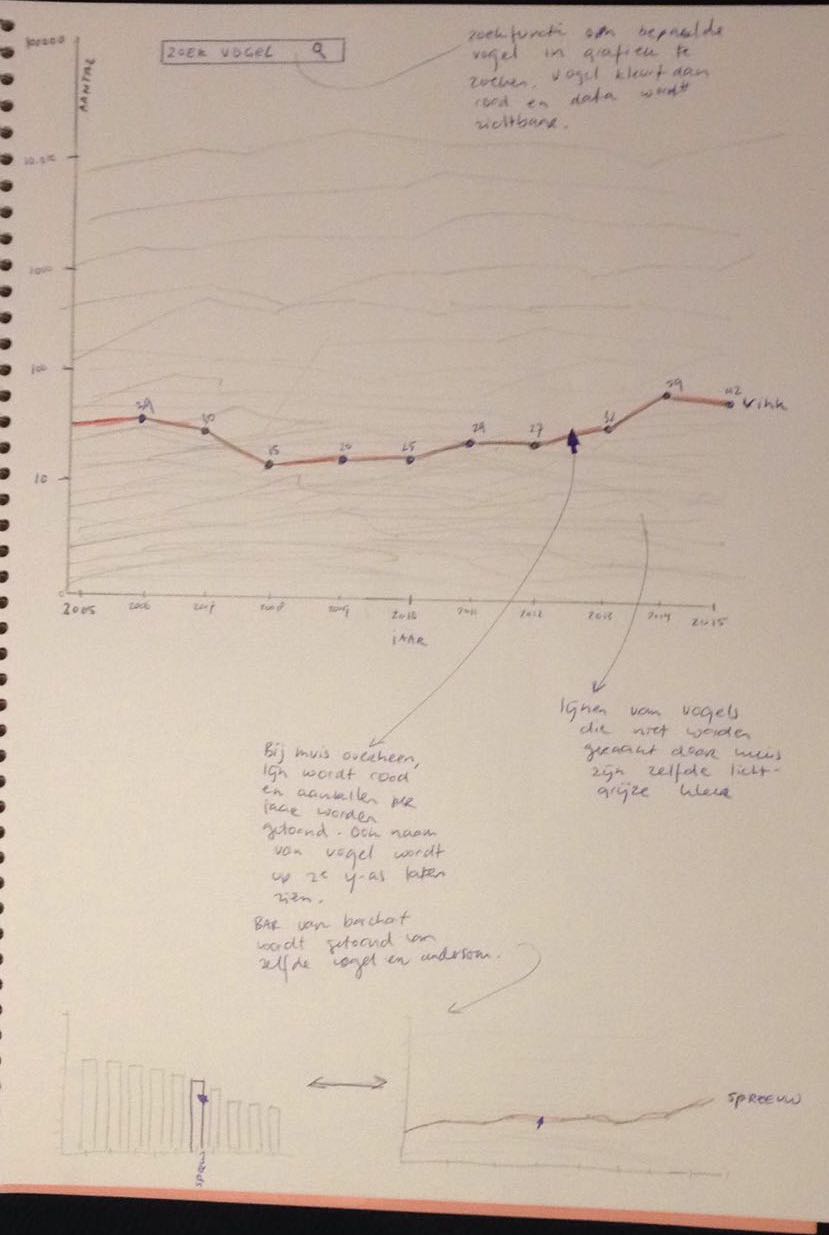 100000
AANTAL
ZOEK VOGEL
zoekfunctie om bepaalde
vogel in grafiek te
zoeken. vogel kleurt dan
rood en data wordt
zichtbaar.
1000
100
10
0
39
30
15
20
25
29
27
32
59
42
Vink
2005
2006
2007
2008
2009
2010
2011
2012
2013
2014
2015
JAAR
lijnen van vogels
die niet worden
geraakt door muis
zijn zelfde licht-
grijze kleur
Bij muis overheen,
lijn wordt rood
en aantallen per
jaar worden
getoond. Ook naam
van vogel wordt
op 2e y-as laten
zien.
BAR van barchat
wordt getoond van
zelfde vogel en andersom.
SPREEUW